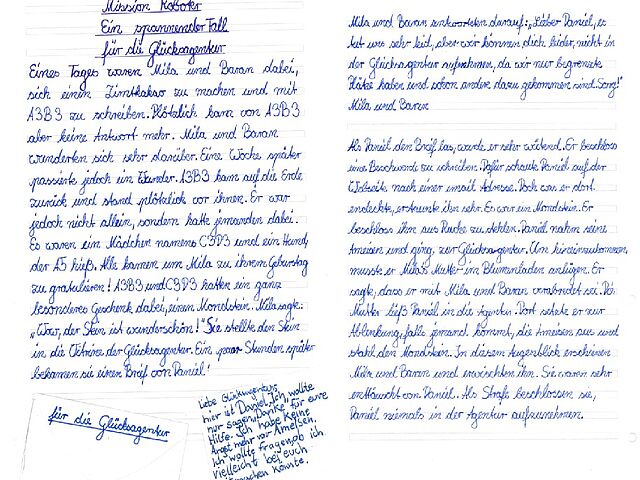 Mission Roboter
Ein spannender Fall
für die Glücksagentur
Eines Tages waren Mila und Baran dabei,
sich einen Zimtkakao zu machen und mit
A3B3 zu schreiben. Plötzlich kam von A3B3
aber keine Antwort mehr. Mila und Baran
wunderten sich sehr darüber. Eine Woche später
passierte jedoch ein Wunder. A3B3 kam auf die Erde
zurück und stand plötzlich vor ihnen. Er war
jedoch nicht allein, sondern hatte jemanden dabei.
Es waren ein Mädchen namens C3P3 und ein Hund,
der A5 hieß. Alle kamen um Mila zu ihrem Geburtstag
zu gratulieren! A3B3 und C3P3 hatten ein ganz
besonderes Geschenk dabei, einen Mondstein. Mila sagte:
„Wow, der Stein ist wunderschön!" Sie stellte den Stein
in die Vitrine der Glücksagentur. Ein paar Stunden später
bekamen sie einen Brief von Daniel!
für die Glücksagentur
Liebe Glücksagentur,
hier ist Daniel. Ich wollte
nur sagen Danke für eure
Hilfe. Ich habe keine
Angst mehr vor Ameisen.
Ich wollte fragen ob ich
vielleicht bei euch
machen könnte.
Mila und Baran antworteten darauf: „Lieber Daniel, es
tut uns sehr leid, aber wir können dich leider nicht in
der Glücksagentur aufnehmen, da wir nur begrenzte
Plätze haben und schon andere dazu gekommen sind. Sorry!"
Mila und Baran
Als Daniel den Brief las, wurde er sehr wütend. Er beschloss
eine Beschwerde zu schreiben. Dafür schaute Daniel auf der
Webseite nach einer email Adresse. Doch was er dort
endeckte, erstaunte ihn sehr. Es war ein Mondstein. Er
beschloss ihn aus Rache zu stehlen. Daniel nahm seine
Ameisen und ging zur Glücksagentur. Um hineinzukommen,
musste er Milas Mutter im Blumenladen anlügen. Er
sagte, dass er mit Mila und Baran verabredet sei. Die
Mutter ließ Daniel in die Agentur. Dort setzte er zur
Ablenkung, falls jemand kommt, die Ameisen aus und
stahl den Mondstein. In diesem Augenblick erschienen
Mila und Baran und erwischten ihn. Sie waren sehr
enttäuscht von Daniel. Als Strafe beschlossen sie,
Daniel niemals in der Agentur aufzunehmen.